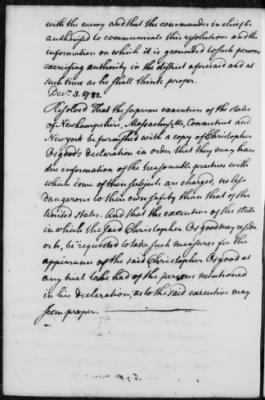 with the enemy and that the commander in chief be
authorised to communicate this resolution and the
information on which it is grounded to such person
exercising authority in the district aforesaid and at
such time as he shall think proper.
Decr. 3. 1782.
Resolved That the supreme executive of the states
of Newhampshire, Massachusetts, Connecticut and
Newyork be furnished with a copy of Christopher
Osgood's Declaration in order that they may have
due information of the treasonable practices with
which some of their subjects are charged, no less
dangerous to their own safety than that of the
United States. And that the executive of the state
in which the said Christopher Osgood may reside
or be, be requested to take such measures for the
appearance of the said Christopher Osgood at
any trial to be had of the persons mentioned
in his declaration, as to the said executive may
seem proper.